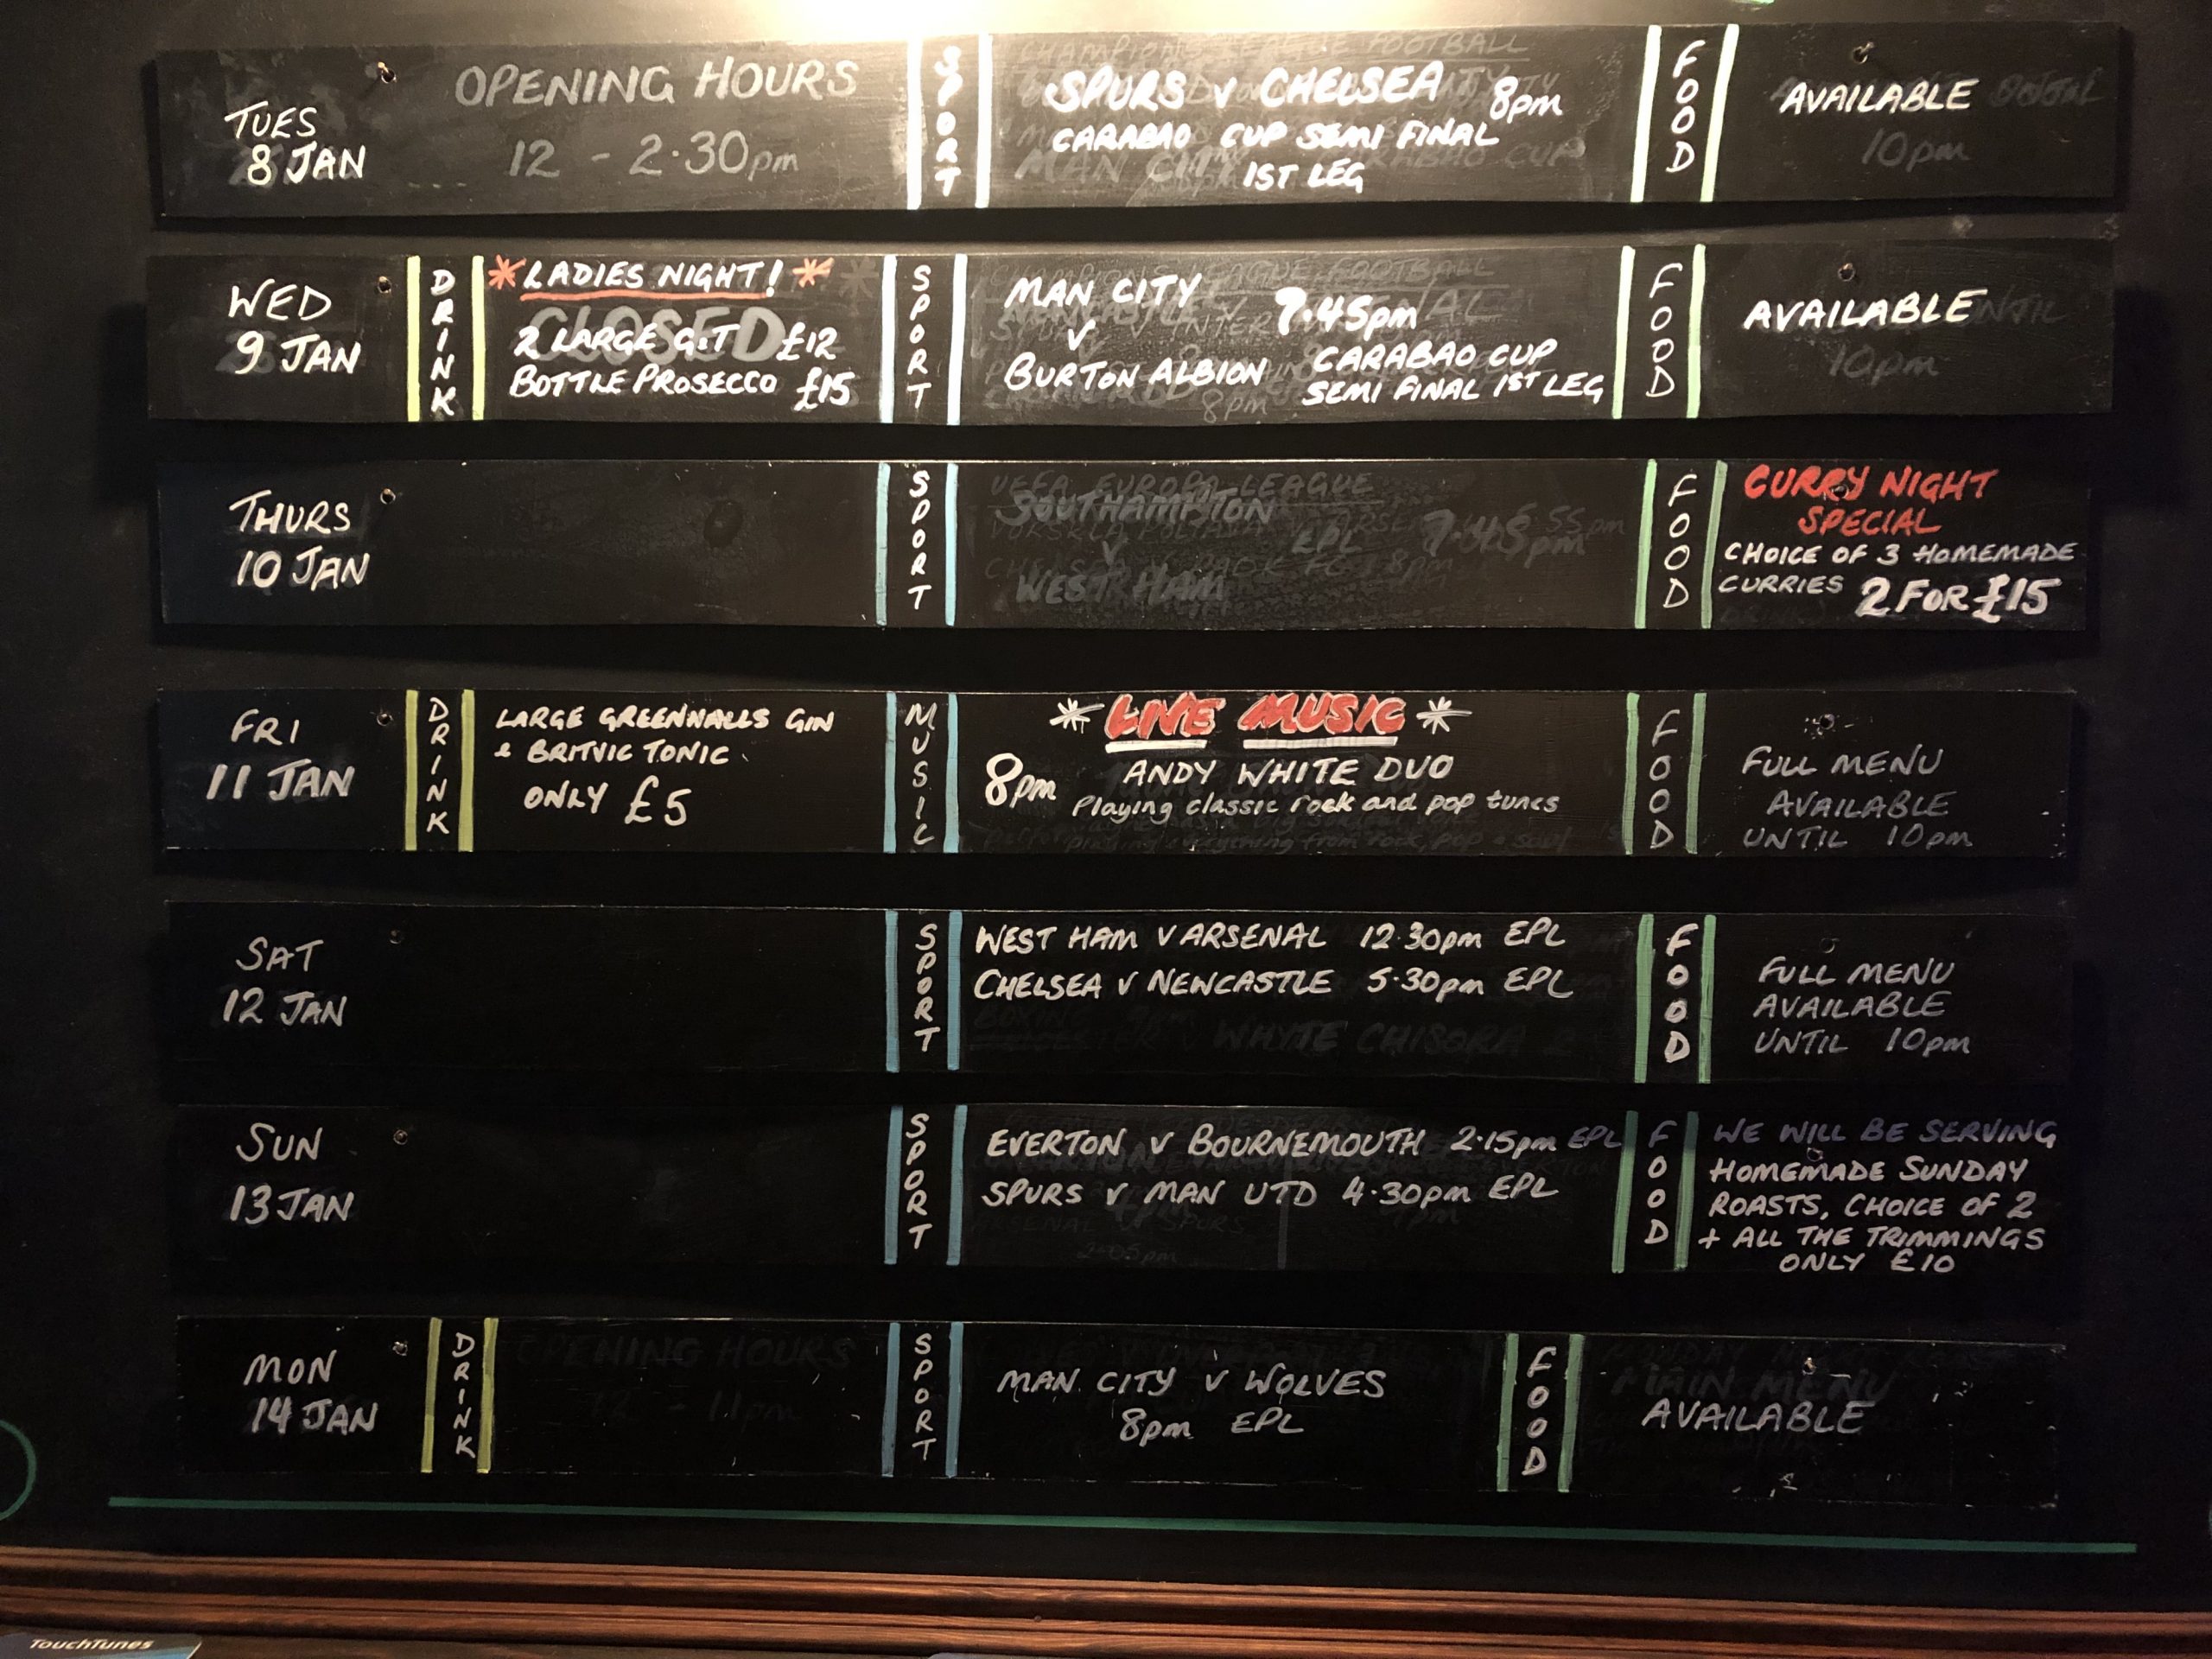 TUES
8 JAN
OPENING HOURS
12 - 2.30pm
SPORT
SPURS v CHELSEA 8pm
CARABAO CUP SEMI FINAL
1ST LEG
FOOD
AVAILABLE
10pm
WED
9 JAN
DRINK
*LADIES NIGHT!*
CLOSED
2 LARGE G&T £12
BOTTLE PROSECCO £15
SPORT
MAN CITY
v
BURTON ALBION
7.45pm
CARABAO CUP
SEMI FINAL 1ST LEG
8pm
FOOD
AVAILABLE
UNTIL
10pm
THURS
10 JAN
SPORT
UEFA EUROPA LEAGUE
SOUTHAMPTON
v
WEST HAM
EPL
FOOD
CURRY NIGHT
SPECIAL
CHOICE OF 3 HOMEMADE
CURRIES 2 FOR £15
FRI
11 JAN
DRINK
LARGE GREENNALLS GIN
& BRITVIC TONIC
ONLY £5
MUSIC
* LIVE MUSIC *
8pm ANDY WHITE DUO
Playing classic rock and pop tunes
FOOD
FULL MENU
AVAILABLE
UNTIL 10pm
SAT
12 JAN
SPORT
WEST HAM v ARSENAL 12.30pm EPL
CHELSEA v NEWCASTLE 5.30pm EPL
WHYTE CHISORA 2
FOOD
FULL MENU
AVAILABLE
UNTIL 10pm
SUN
13 JAN
SPORT
EVERTON v BOURNEMOUTH 2.15pm EPL
SPURS v MAN UTD 4.30pm EPL
ARSENAL v SPURS
2.05pm
FOOD
WE WILL BE SERVING
HOMEMADE SUNDAY
ROASTS, CHOICE OF 2
+ ALL THE TRIMMINGS
ONLY £10
MON
14 JAN
DRINK
OPENING HOURS
12 - 11pm
SPORT
MAN CITY v WOLVES
8pm EPL
FOOD
MAIN MENU
AVAILABLE
TouchTunes